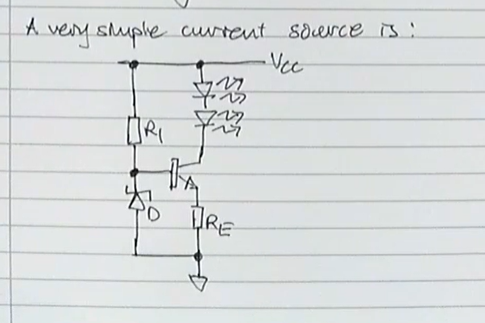 A very simple current source is:
Vcc
R1
D
RE